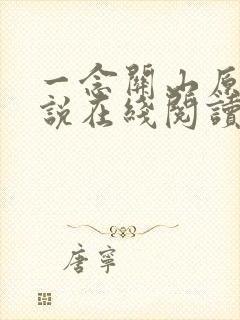 一念關山原
說在綫閱讀
唐寧